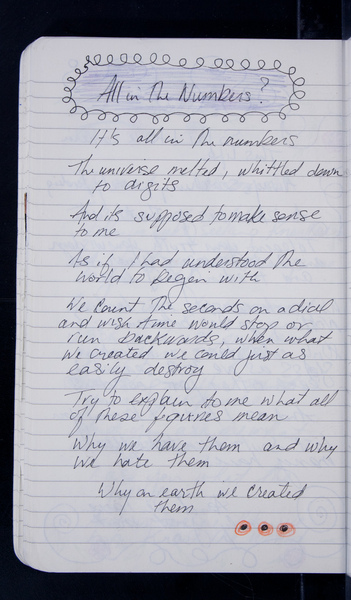 All in The Numbers?
It's all in The numbers
The universe melted, whittled down
to digits
And its supposed to make sense
to me
As if I had understood The
world to begen with
We count The seconds on a dial
and wish time would stop or
run backwards, when what
we created we could just as
easily destroy
Try to explain to me what all
of These figures mean
Why we have them and why
we hate them
Why on earth we created
them